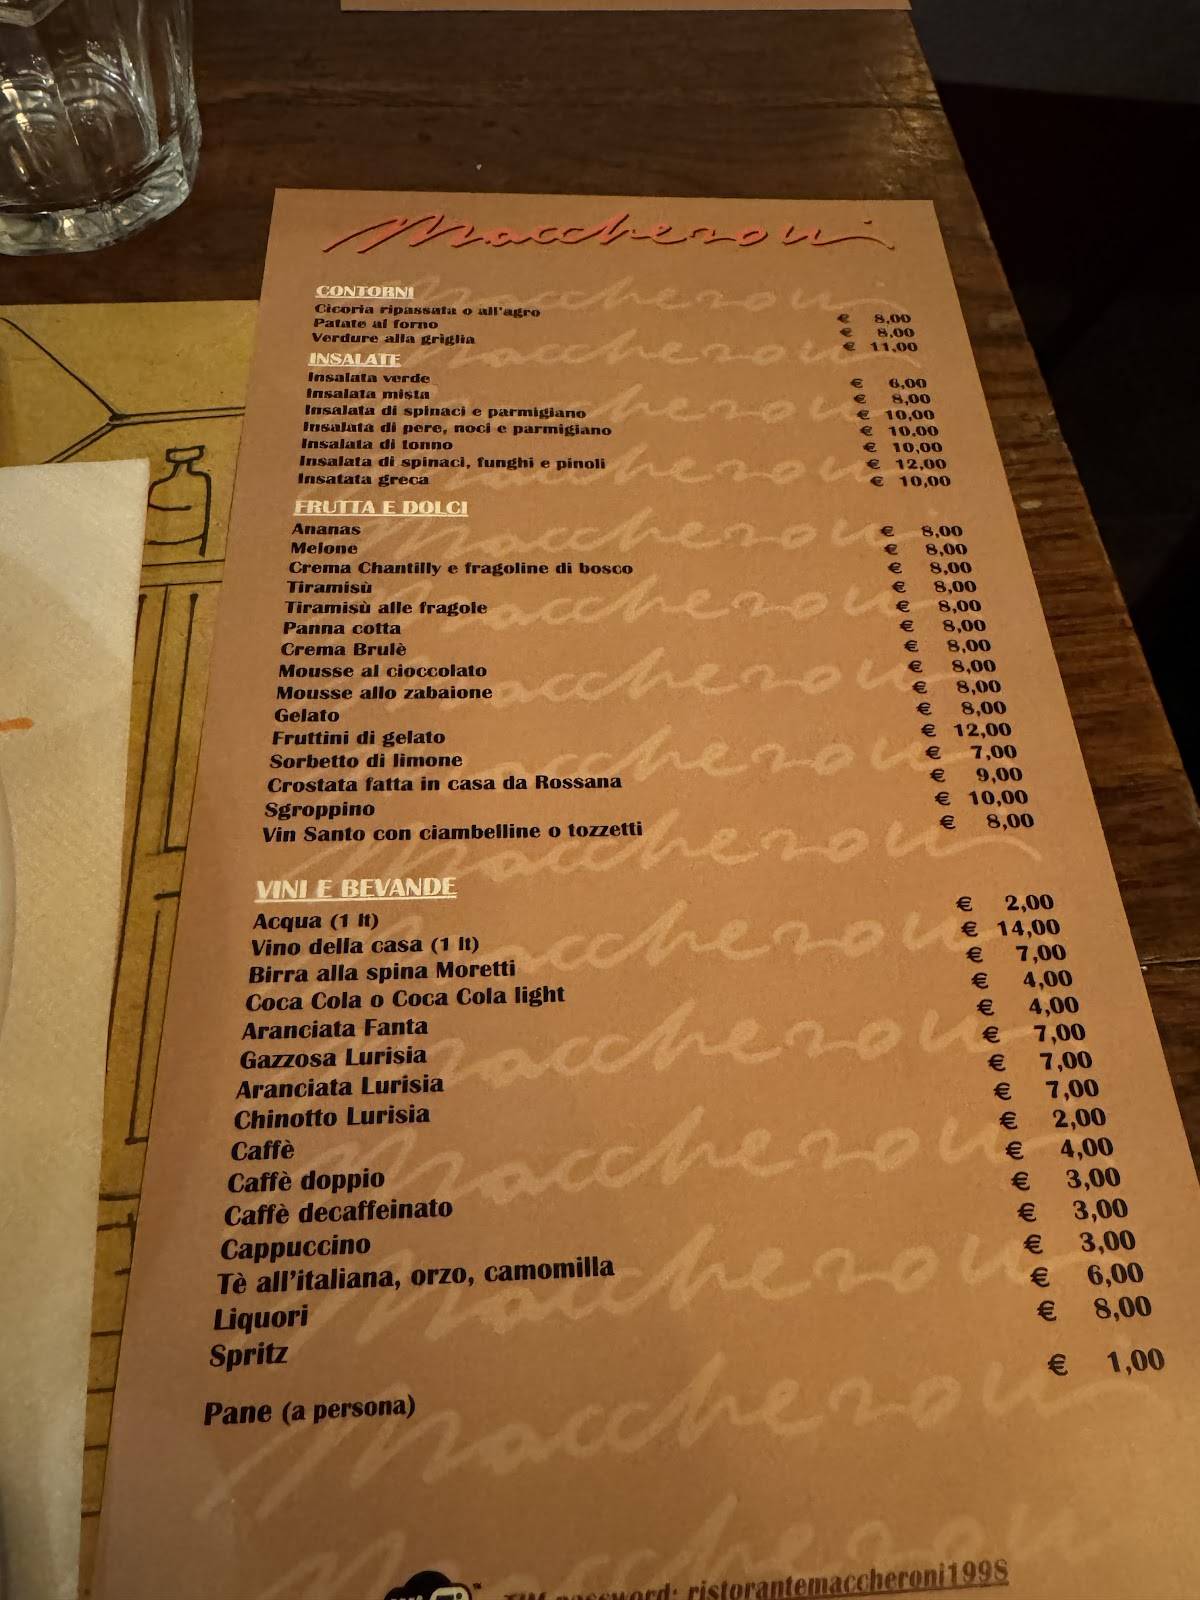 Maccheroni
CONTORNI
Cicoria ripassata o all'agro € 8,00
Patate al forno € 8,00
Verdure alla griglia € 11,00
INSALATE
Insalata verde € 6,00
Insalata mista € 8,00
Insalata di spinaci e parmigiano € 10,00
Insalata di pere, noci e parmigiano € 10,00
Insalata di tonno € 10,00
Insalata di spinaci, funghi e pinoli € 12,00
Insatata greca € 10,00
FRUTTA E DOLCI
Ananas € 8,00
Melone € 8,00
Crema Chantilly e fragoline di bosco € 8,00
Tiramisù € 8,00
Tiramisù alle fragole € 8,00
Panna cotta € 8,00
Crema Brulè € 8,00
Mousse al cioccolato € 8,00
Mousse allo zabaione € 8,00
Gelato € 8,00
Fruttini di gelato € 12,00
Sorbetto di limone € 7,00
Crostata fatta in casa da Rossana € 9,00
Sgroppino € 10,00
Vin Santo con ciambelline o tozzetti € 8,00
VINI E BEVANDE
Acqua (1 lt) € 2,00
Vino della casa (1 lt) € 14,00
Birra alla spina Moretti € 7,00
Coca Cola o Coca Cola light € 4,00
Aranciata Fanta € 4,00
Gazzosa Lurisia € 7,00
Aranciata Lurisia € 7,00
Chinotto Lurisia € 7,00
Caffè € 2,00
Caffè doppio € 4,00
Caffè decaffeinato € 3,00
Cappuccino € 3,00
Tè all'italiana, orzo, camomilla € 3,00
Liquori € 6,00
Spritz € 8,00
Pane (a persona) € 1,00
TIM password: ristorantemaccheroni1998